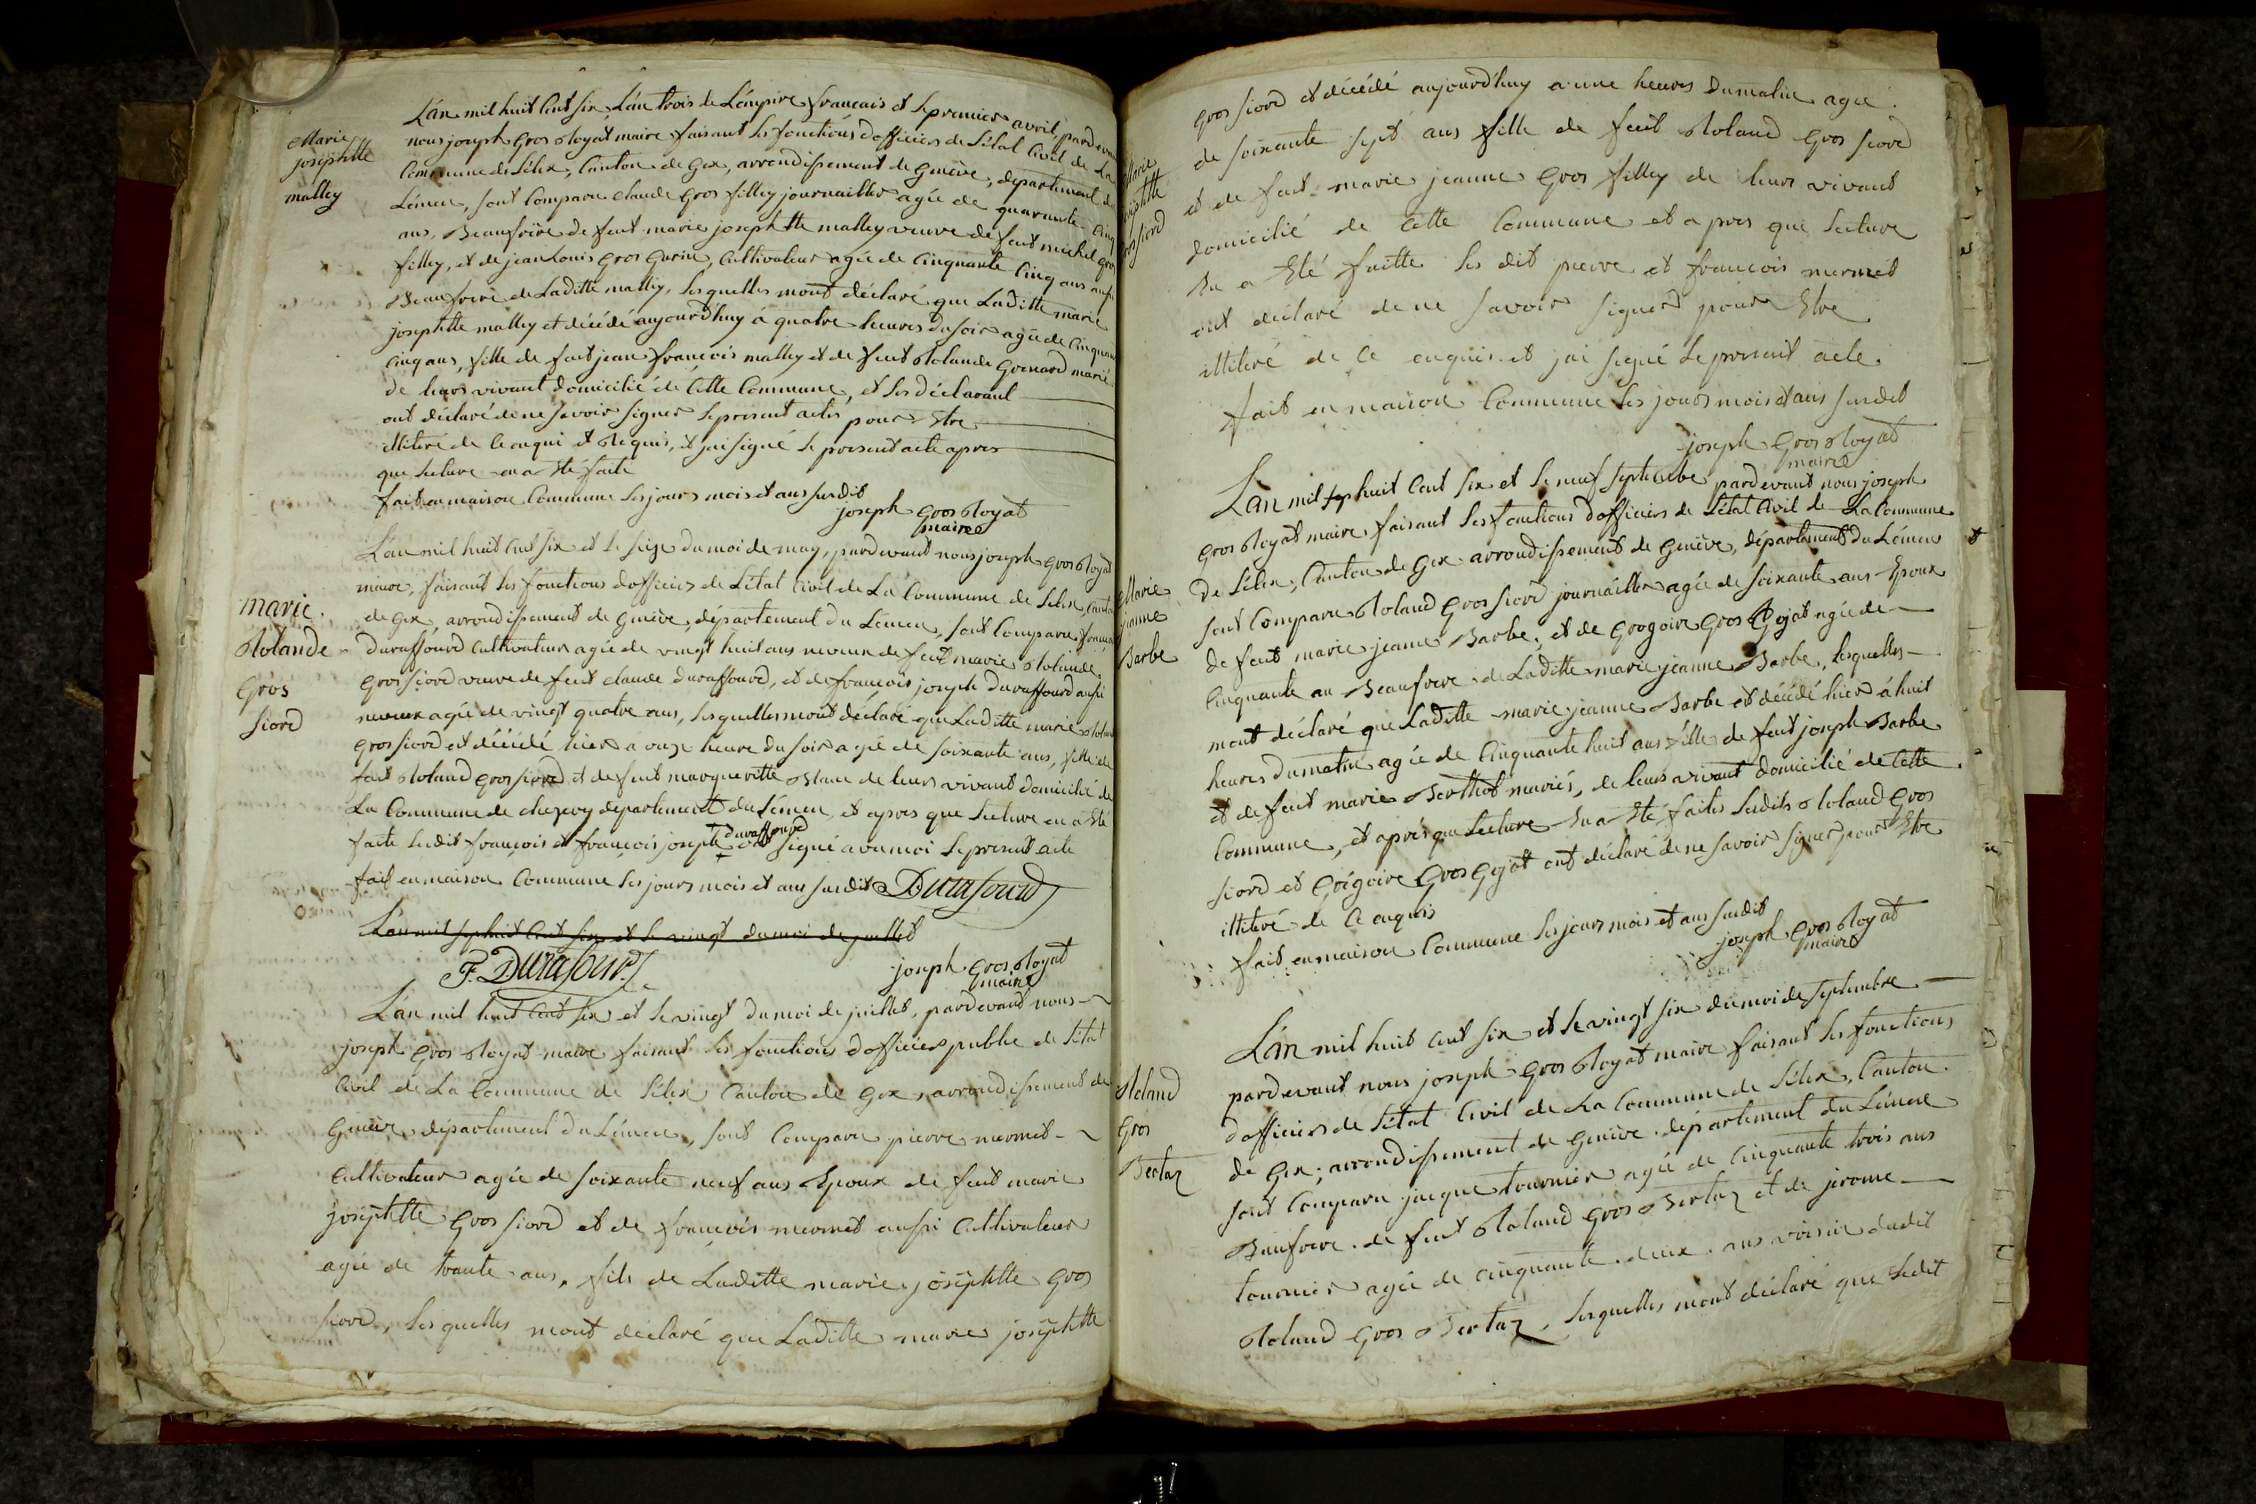 Marie
josephtte
malley
L'an mil huit Cent six, L'an trois de L'empire francais et le premier avril, pardevant
nous joseph gros Royat maire faisant les fonctions dofficier de L'état Civil de La
Commune de Lélex, Canton de Gex, arrondissement de Genève, département du
Lémen, sont Comparu Claude Gros filley journaillier agée de quarante Cinq
ans, Beaufrère de feut marie josephtte malley veuve de feut michel gros
filley, et de jean Louis Gros Gurin, Cultivateur agée de Cinquante Cinq ans aussi
Beaufrere de Laditte malley, les quelles mont déclaré que Laditte marie
josephtte malley et décédé aujourd'huy á quatre heures du soir agée de Cinquante
Cinq ans, fille de feut jean francois malley et de feut Rolande Grenard marié
de leurs vivant domicilié de Cette Commune, et les déclarant
ont déclaré de ne savoir signer le present actes pour Etre
illiteré de Ce enqui et Requis, et jai signé le present acte apres
que lecture en a Eté faite
fait en maison Commune les jours mois et ans susdit
joseph gros Royat
maire
marie
Rolande
Gros
fiord
L'an mil huit Cent six et le seize du moi de may, pardevant nous joseph gros Royat
maire, faisant les fonctions dofficier de L'état Civil de La Commune de Lélex, Canton
de Gex, arrondissement de Genève, département du Lémen, sont Comparu françois
Duraffourd Cultivateur agée de vingt huit ans neveux de feut marie Rolande
Gros fiord veuve de feut claude Duraffourd, et de françois joseph Duraffourd aussi
neveux agée de vingt quatre ans, lesquelles mont déclaré que Laditte marie Rolande
Gros fiord et décédé hier á onze heure du soir agée de soixante ans, fille de
feut Roland gros fiord et de feut margueritte Blanc de leurs vivant domicilié de
La Commune de chezery département du Lémen, et apres que lecture en a Eté
faite Ledit françois et françois joseph duraffourd ont signé avec moi le present acte
fait en maison Commune les jours mois et ans susdit Durafourd
L'an mil sephuit Cent six et le vingt du moi de juillet
F. Durafourd
joseph gros Royat
maire
L'an mil huit Cent six et le vingt du moi de juillet, pardevant nous
joseph gros Royat maire faisant les fonctions dofficier public de L'état
Civil de La Commune de Lélex Canton de Gex, arrondissement de
Genève, département du Lémen, sont Comparu pierre mermet
Cultivateur agée de soixante neuf ans Epoux de feut marie
joséphtte Gros fiord et de francois mermet aussi Cultivateur
agée de trante ans, fils de Laditte marie joséphtte gros
fiord, les quelles mont déclaré que Laditte marie josephtte
Marie
josephtte
gros fiord
gros fiord et décédé aujourd'huy a une heures du matin agee
de soixante sept ans fille de feut Roland gros fiord
et de feut marie jeanne Gros filley de leurs vivant
domicilié de Cette Commune et a pres que lecture
En a Eté faitte les dit pierre et francois mermet
ont déclaré de ne savoir signer pour Etre
illiteré de Ce enquis et jai signé le present acte
fait en maison Commune les jours mois et ans susdit
joseph gros Royat
maire
Marie
jeanne
Barbe
L'an mil sep huit Cent six et le neuf septembre pardevant nous joseph
gros Royat maire faisant les fonctions dofficiers de L'état Civil de La Commune
de Lélex, Canton de Gex arrondissement de Genève, département du Lémen
sont Comparu Roland Gros fiord journaillier agée de soixante ans Epoux
de feut marie jeanne Barbe, et de Grogoire Gros Gojat agée de
Cinquante an Beaufrere de Laditte marie jeanne Barbe, lesquelles
mont déclaré que Laditte marie jeanne Barbe et décédé hier á huit
heures du matin agée de Cinquante huit ans fille de feut joseph Barbe
et de feut marie Berthet mariés, de leurs vivant domicilié de Cette
Commune, et aprés que Lecture En a Eté faites Ledits Roland Gros
fiord et Grégoire Gros Gojat ont déclaré de ne savoir signer pour Etre
illiteré de Ce enquis
fait en maison Commune les jours mois et ans susdit
joseph gros Royat
maire
Roland
Gros
Bertaz
L'an mil huit Cent six et le vingt six du moi de septembre
pardevant nous joseph gros Royat maire faisant les fonctions
dofficiers de L'état Civil de La Commune de Lélex, Canton
de Gex, arrondissement de Genève, département du Lémen
sont Comparu jacque tournier agée de Cinquante trois ans
Baufrere de feut Roland gros Bertaz et de jerome
tournier agée de cinquante deux ans voisin dudit
Roland gros Bertaz, lesquelles mont déclaré que Ledit